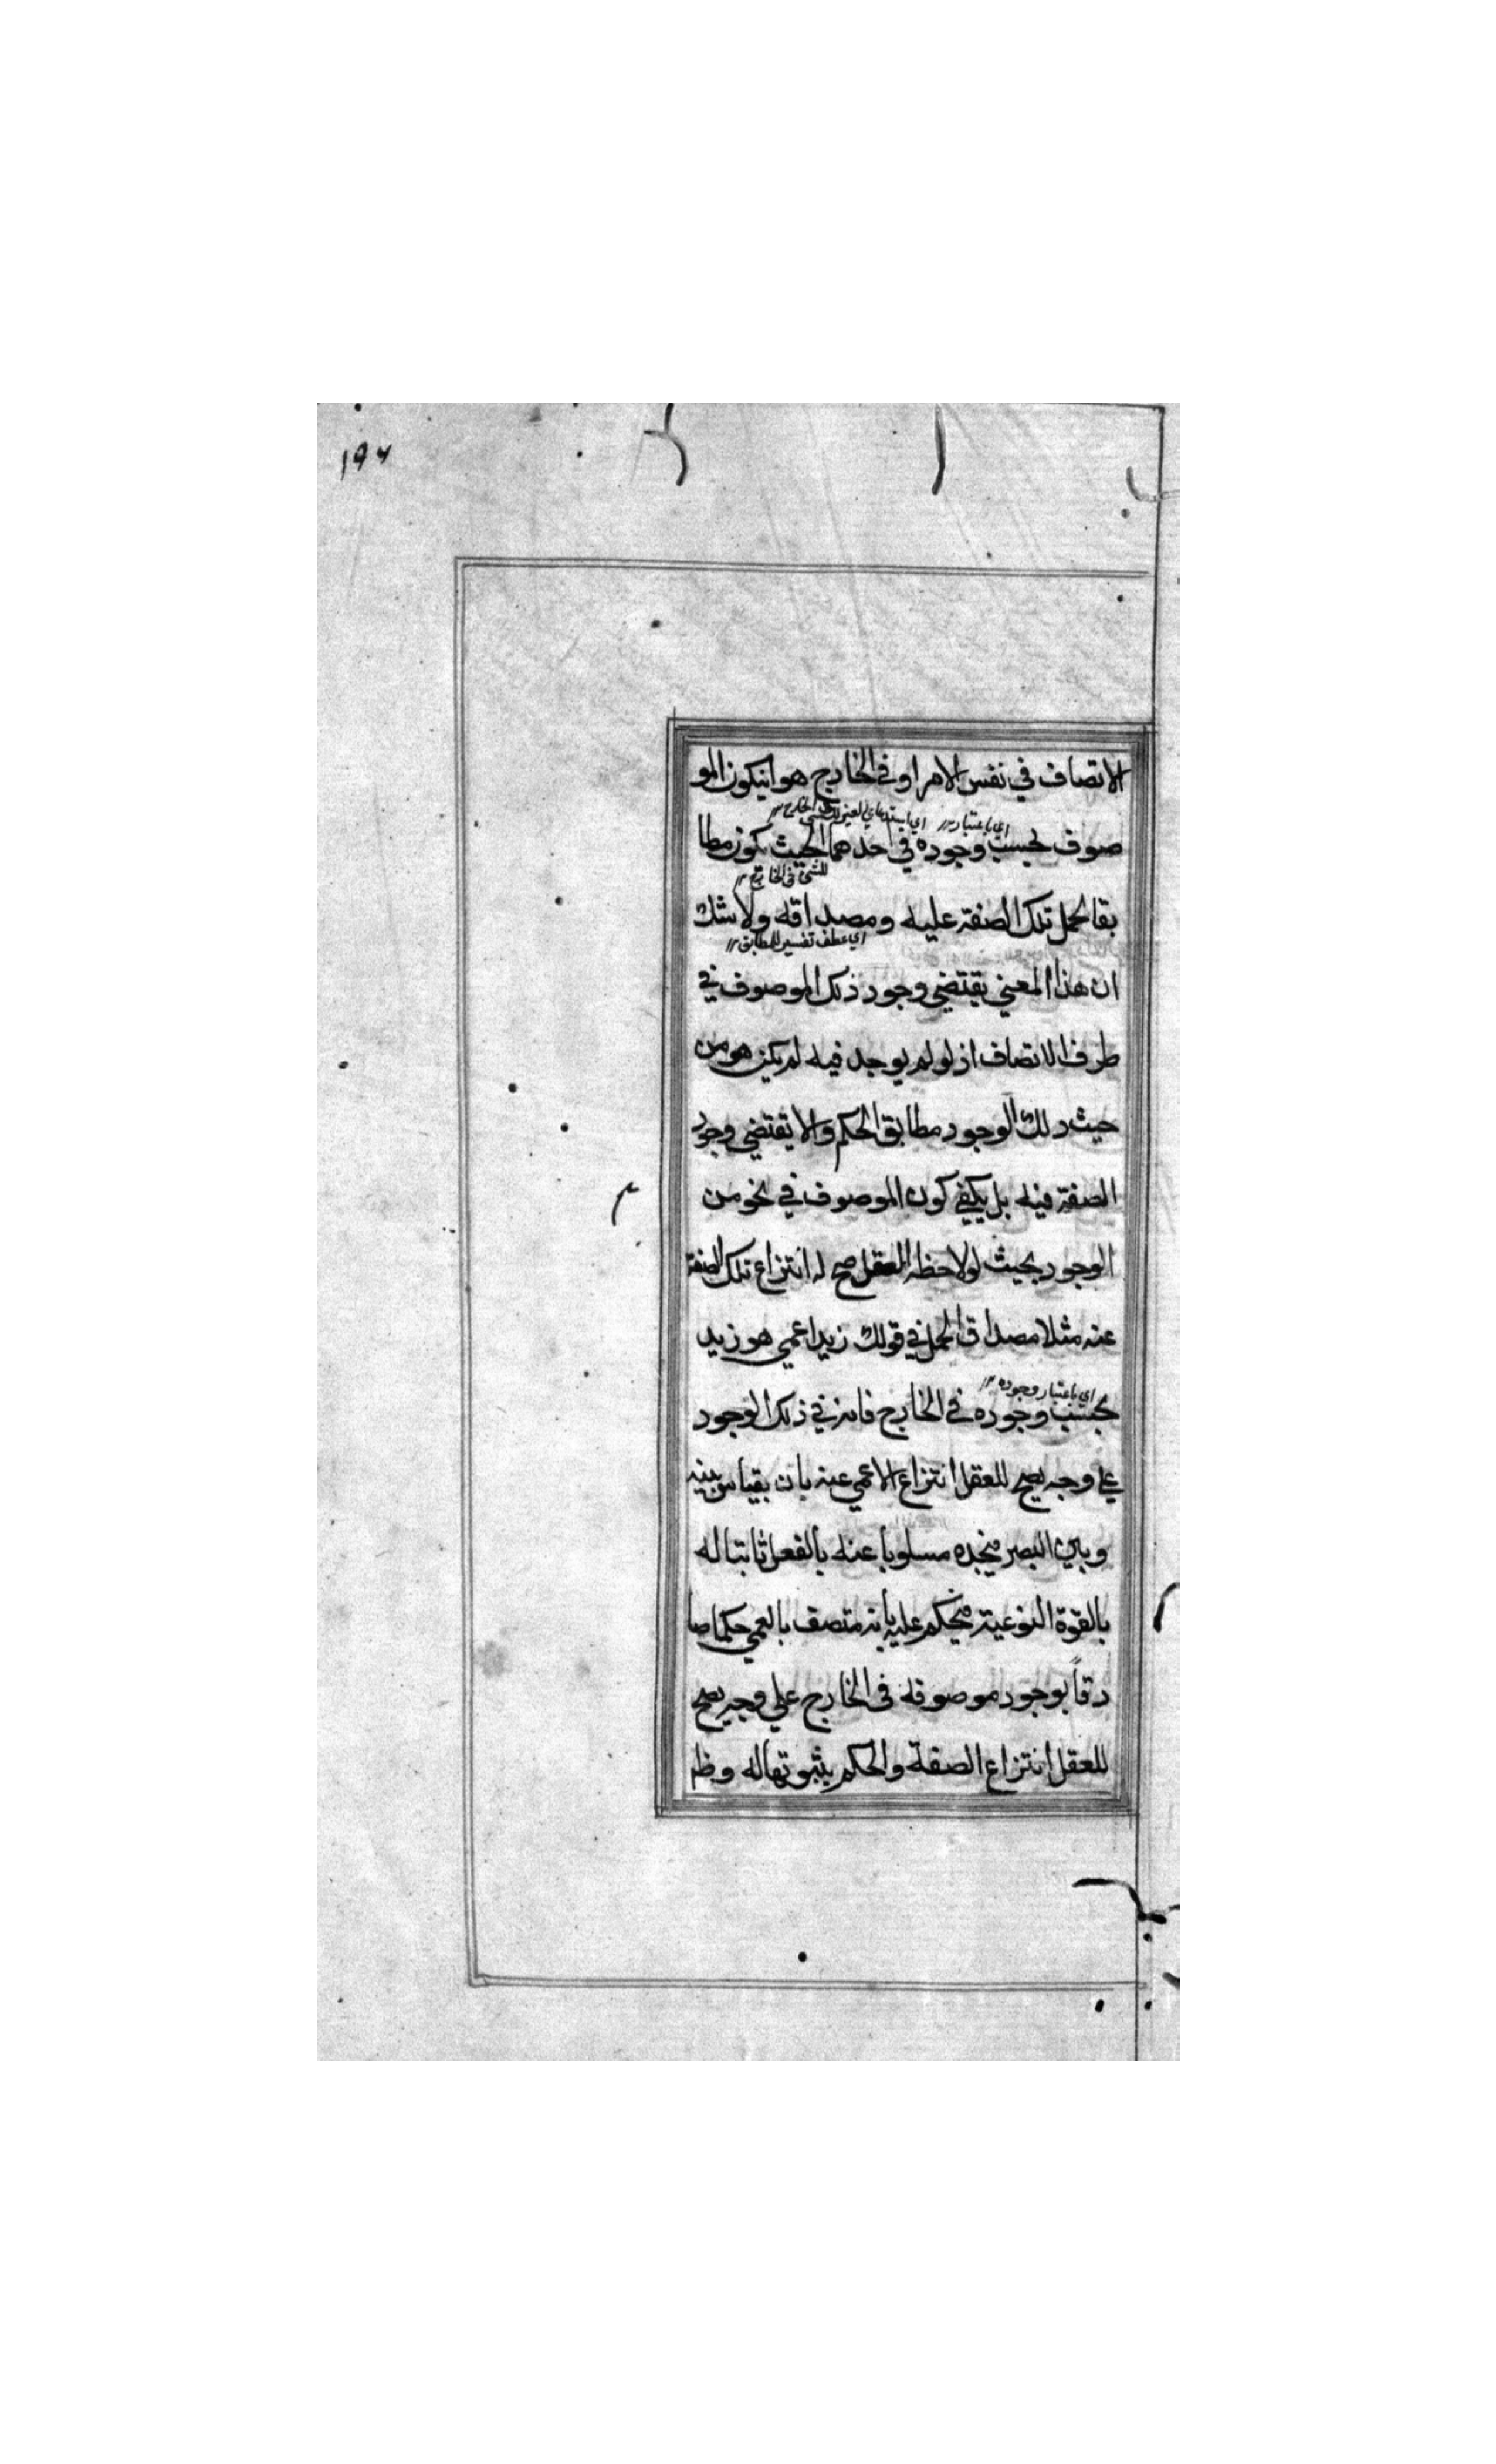 ١٩٦
الاتصاف في نفس الامر او في الخارج هو ان يكون المو
اي باعتبار
صوف بحسب وجوده في احدهما بحيث يكون مطا
للشئ في الخارج
بقا لحمل تلك الصفة عليه ومصداقه ولا شك
اي عطف تفسير للمطابق
ان هذا المعني يقتضي وجود ذلك الموصوف في
ظرف الاتصاف اذ لو لم يوجد فيه لم يكن هو من
حيث ذلك الوجود مطابق الحكم ولا يقتضي وجود
الصفة فيه بل يكفي كون الموصوف في نحو من
الوجود بحيث لو لاحظه العقل صح له انتزاع تلك الصفة
عنه مثلا مصداق الحمل في قولك زيد اعمي هو زيد
اي باعتبار وجوده
بحسب وجوده في الخارج فانه في ذلك الوجود
علي وجه يصح للعقل انتزاع الاعمي عنه بان يقياس بينه
وبين البصر فيجده مسلوبا عنه بالفعل ثابتا له
بالقوة النوعية فيحكم عليه بانه متصف بالعمي حكما صا
دقاً بوجود موصوفه في الخارج علي وجه يصح
للعقل انتزاع الصفة والحكم بثبوتها له وظا